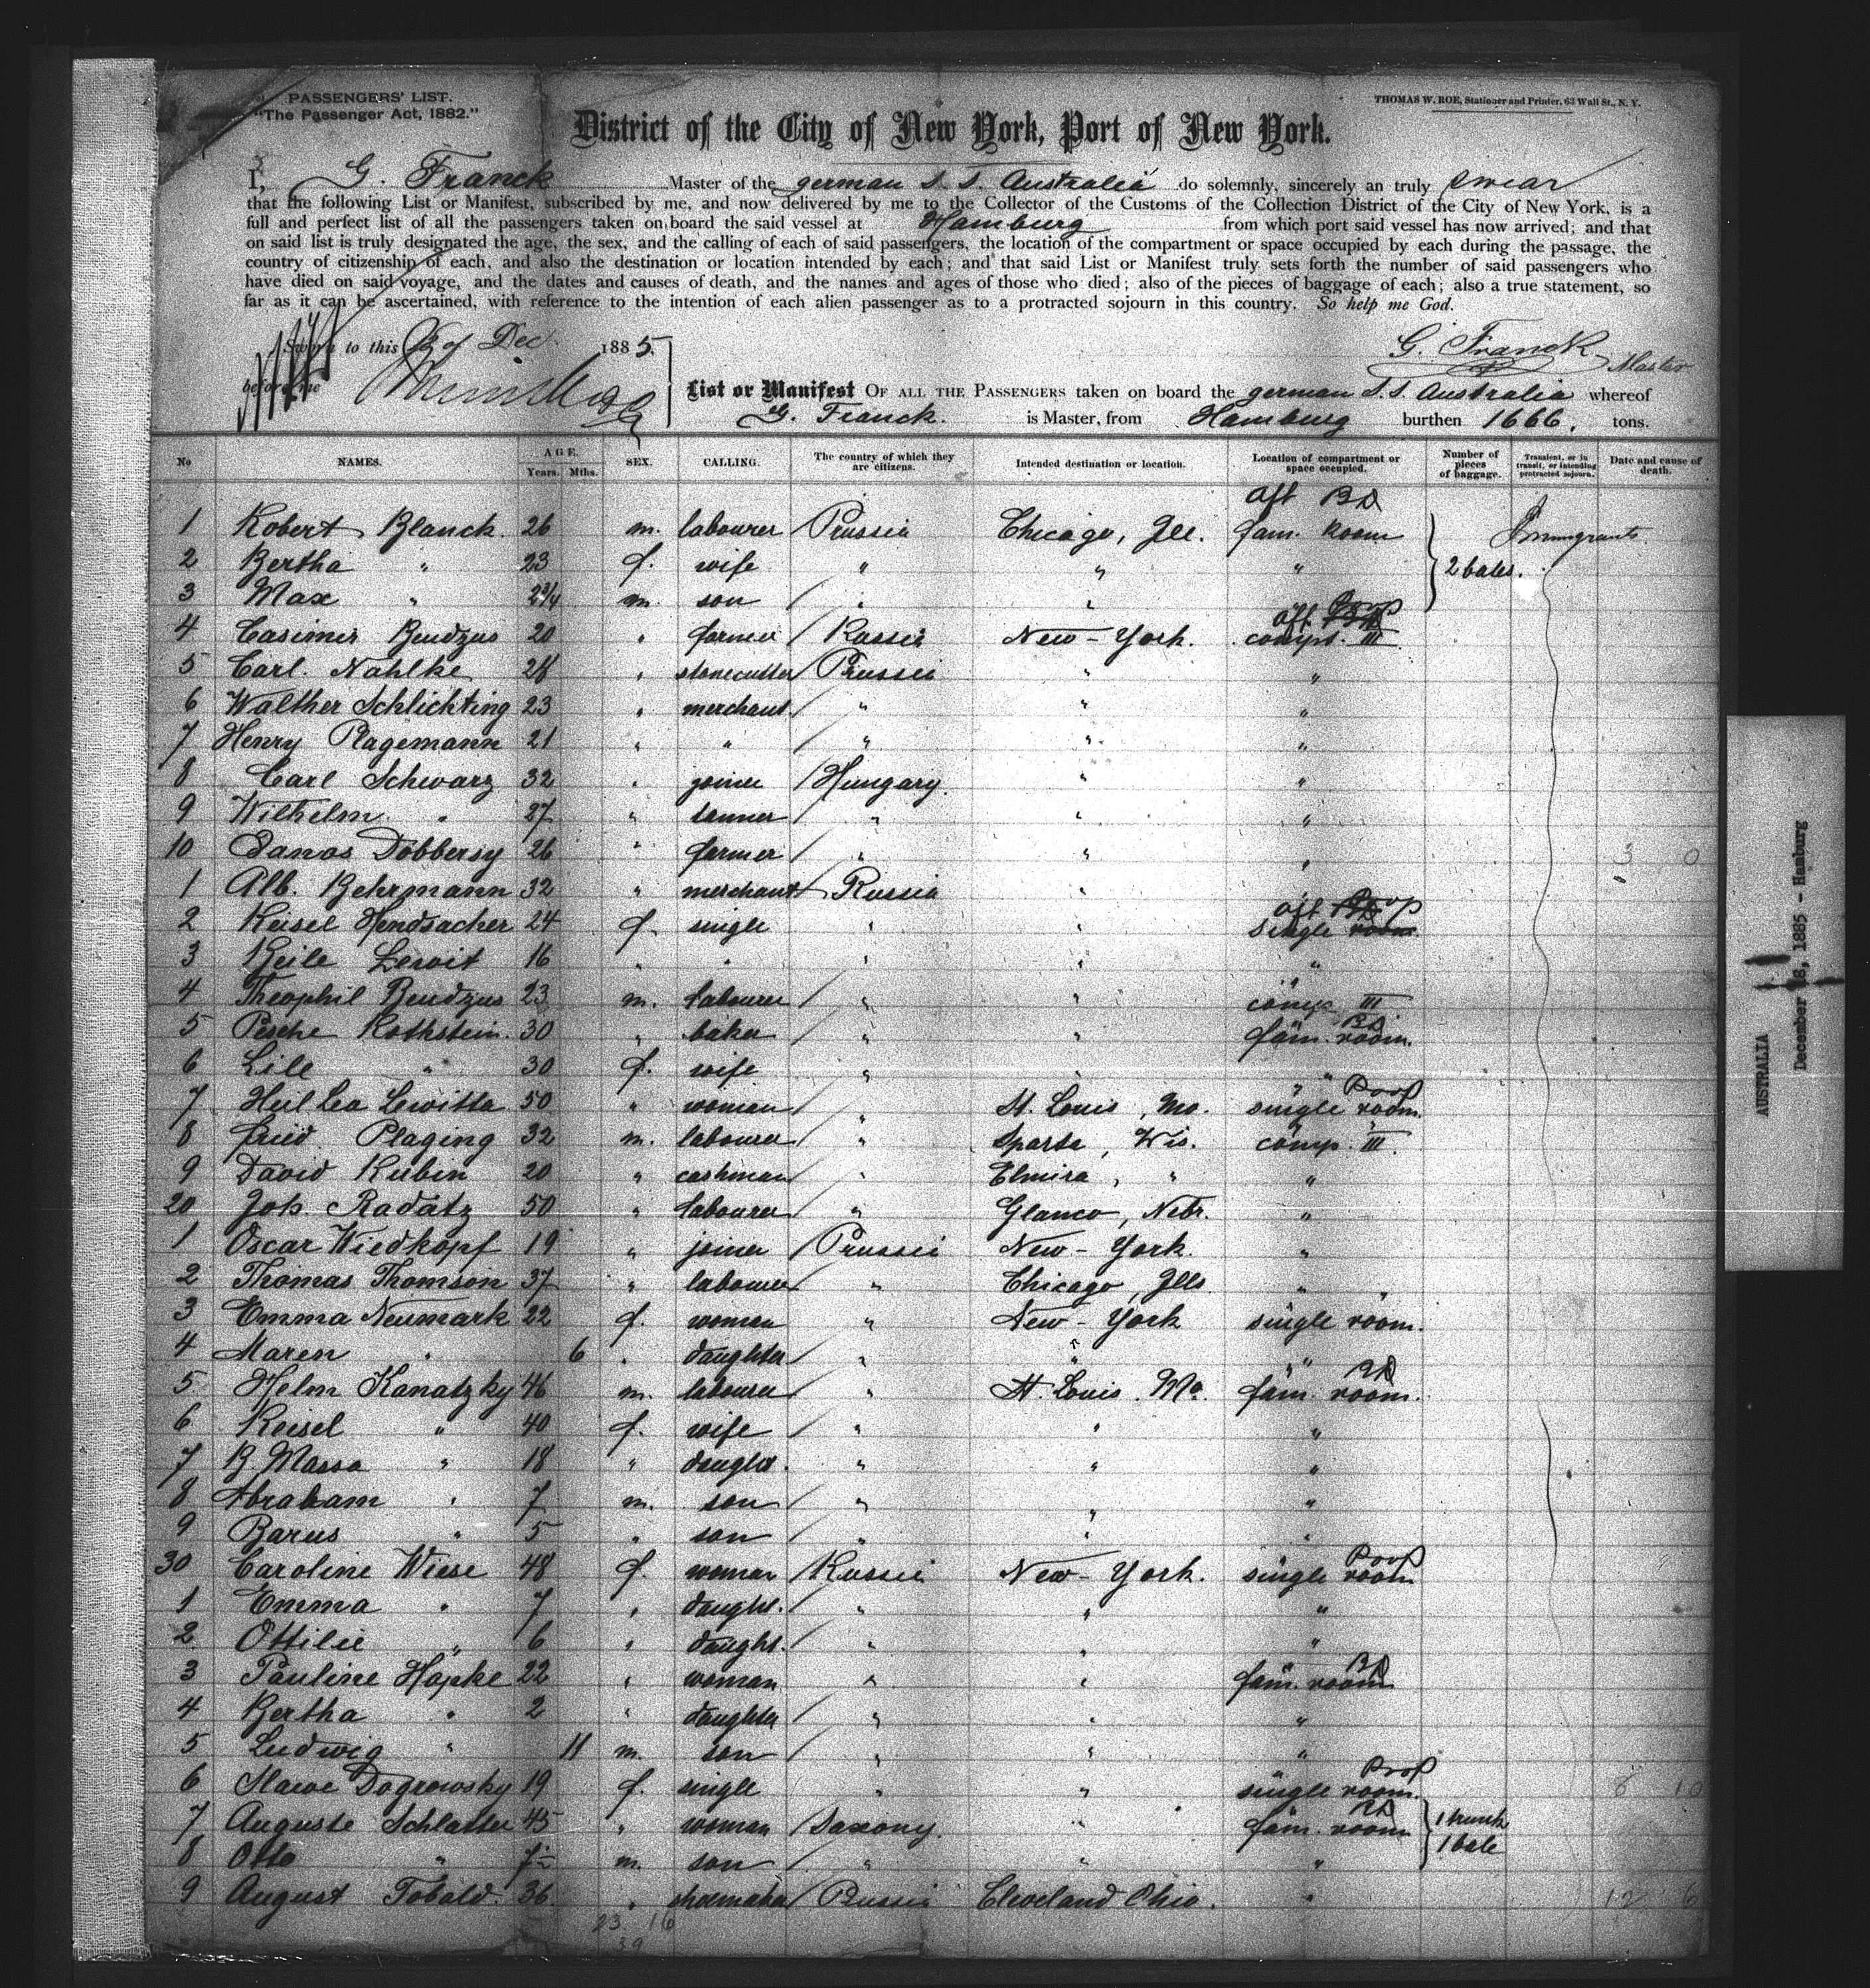 PASSENGERS' LIST.
"The Passenger Act, 1882."
THOMAS W. ROE, Stationer and Printer, 63 Wall St., N. Y.
District of the City of New York, Port of New York.
I, G. Franck Master of the german S. S. Australia do solemnly, sincerely an truly swear
that the following List or Manifest, subscribed by me, and now delivered by me to the Collector of the Customs of the Collection District of the City of New York, is a
full and perfect list of all the passengers taken on board the said vessel at Hamburg from which port said vessel has now arrived; and that
on said list is truly designated the age, the sex, and the calling of each of said passengers, the location of the compartment or space occupied by each during the passage, the
country of citizenship of each, and also the destination or location intended by each; and that said List or Manifest truly sets forth the number of said passengers who
have died on said voyage, and the dates and causes of death, and the names and ages of those who died; also of the pieces of baggage of each; also a true statement, so
far as it can be ascertained, with reference to the intention of each alien passenger as to a protracted sojourn in this country. So help me God.
Sworn to this of Dec 1885.
G. Franck Master
before me
List or Manifest OF ALL THE PASSENGERS taken on board the german S. S. Australia whereof
G. Franck. is Master, from Hamburg burthen 1666. tons.
No NAMES. AGE. Years. Mths. SEX. CALLING. The country of which they are citizens. Intended destination or location. Location of compartment or space occupied. Number of pieces of baggage. Transient, or in transit, or intending protracted sojourn. Date and cause of death.
aft BD
1 Robert Blanck. 26 m. labourer Prussia Chicago, Ill. fam. Room Immigrants
2 Bertha " 23 f. wife " " " 2 bales.
3 Max " 2 3/4 m. son " "
aft Prop
4 Casimir Bendzus 20 " farmer Russia New-York. compt. III
5 Carl. Nahlke 28 " stonecutter Prussia " "
6 Walther Schlichting 23 " merchant. " " "
7 Henry Plagemann 21 " " " " "
8 Carl Schwarz 32 " joiner Hungary. " "
9 Wilhelm " 27 " tanner " " "
10 Danos Dobbersy 26 " farmer " " "
1 Alb. Behrmann 32 " merchant Russia "
aft Prop
2 Reisel Hendsacher 24 f. single " " single room.
3 Beile Lewit 16 " " " " "
4 Theophil Bendzus 23 m. labourer " " comp. III
BD
5 Pesche Rothstein. 30 " baker " " fam. room.
6 Lill " 30 f. wife " " "
Prop
7 Heil Lea Lewitta 50 " woman " St. Louis, Mo. single room.
8 fried Plaging 32 m. labourer " Sparta, Wis. comp. III.
9 David Rubin 20 " " Elmira, " "
20 Joh. Radatz 50 " labourer " Glanco, Nebr. "
1 Oscar Wiedkopf 19 " joiner Prussia New-York. "
2 Thomas Thomson 37 " labourer " Chicago, Ills. "
3 Emma Neumark 22 f. woman " New-York single room.
4 Maren " 6 " daughter " " "
BD
5 Helm Kanatzky 46 m. labourer " St. Louis. Mo. fam. room.
6 Reisel " 40 f. wife " " "
7 B. Massa " 18 " daughter. " " "
8 Abraham " 7 m. son " " "
9 Barus " 5 " son " " "
Prop
30 Caroline Wiese 48 f. woman Russia New-York. single room
1 Emma " 7 " daught. " " "
2 Ottilie " 6 " daught. " " "
BD
3 Pauline Höpke 22 " woman " " fam. room
4 Bertha " 2 " daughter " " "
5 Ludwig " 11 m. son " " "
Prop
6 Slawe Dogrowsky 19 f. single " " single room.
BD
7 Auguste Schlatter 45 " woman Saxony. " fam. room 1 trunk
8 Otto " m. son " " " 1 bale
9 August Tobald. 36. " shoemaker Cleveland Ohio. "
23 16
39
AUSTRALIA
December 18, 1885 - Hamburg